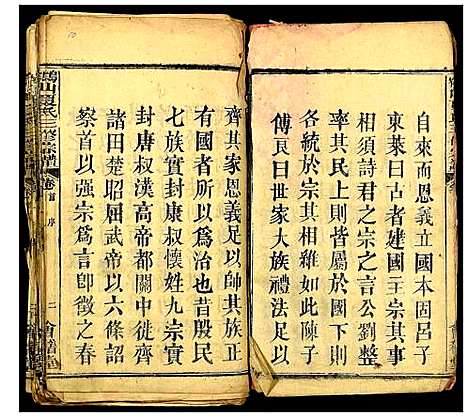 自來而恩義立國本固呂子
東萊曰古者建國立宗其事
相須詩君之宗之言公劉整
率其民上則皆屬於國下則
各統於宗其相維如此陳子
傅良曰世家大族禮法足以
齊其家恩義足以帥其族正
周之所以為有者也殷民
七族實封康叔懷姓九宗實
封唐叔漢高帝都關中徙齊
諸田楚昭屈武帝以六條詔
察首以強宗為言即徵之春
山夏氏三修宗譜
卷首 序
二 會禧堂